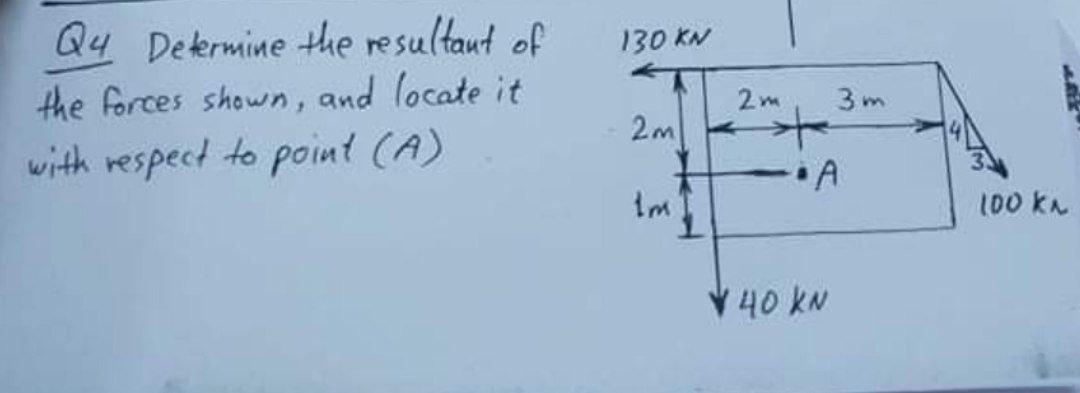 Q4 Determine the resultant of
the forces shown, and locate it
with respect to point (A)
130 KN
2m
3m
2m
4
3
A
1m
100 KN
40 KN